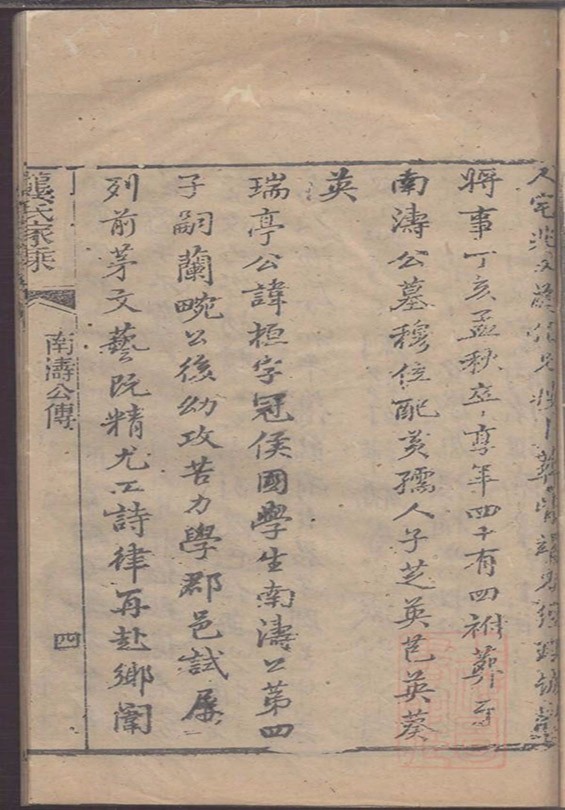 將事丁亥孟秋卒享年四十有四祔葬于
南濤公墓穆位配黃孺人子芝英芑英葵
英
瑞亭公諱桓字冠侯國學生南濤公第四
子嗣蘭畹公後幼攻苦力學郡邑試屢
列前茅文藝既精尤工詩律再赴鄉闈
龔氏家乘
南濤公傳
四